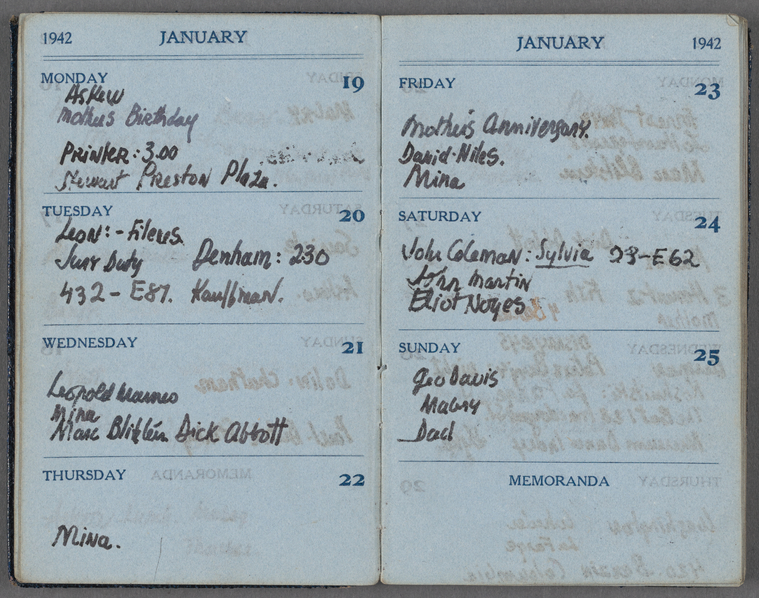 1942 JANUARY
MONDAY 19
Askew
Mothers Birthday
Printer: 3.00
Stewart Preston Plaza.
TUESDAY 20
Leon: - Fileres
Jury Duty Denham: 230
432 - E87. Kauffman.
WEDNESDAY 21
Leopold
Mina
Marc Blitzten Dick Abbott
THURSDAY 22
Mina.
JANUARY 1942
FRIDAY 23
Mother's Anniversary.
David-Niles.
Mina
SATURDAY 24
John Coleman: Sylvia 23-E62
John Martin
Eliot Noyes
SUNDAY 25
Geo Davis
Dad
MEMORANDA